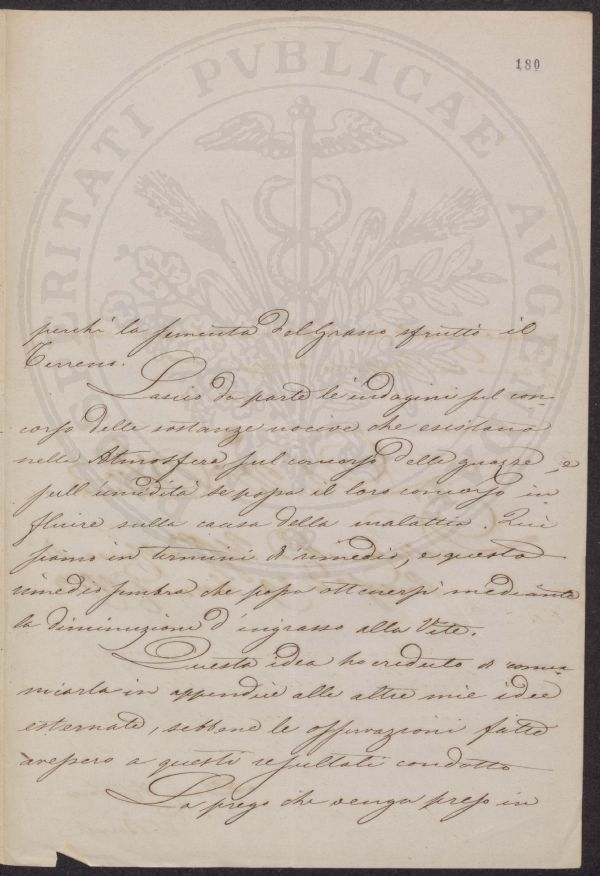 180
perchè la sementa del Grano sfruttò il
Terreno.
Lascio da parte le indagini sul con-
corso delle sostanze nocive che esistano
nella Atmosfera sul concorso delle guazze, e
sull'umidità se possa il loro concorso in
fluire sulla causa della malattia. Qui
siamo in termini di rimedio, e questo
rimedio sembra che possa ottenersi mediante
la diminuzione d'ingrasso alla Vite.
Questa idea ho creduto di comu
nicarla in appendice alle altre mie idee
esternate, sebbene le osservazioni fatte
avessero a questi resultati condotto
La prego che venga preso in
POSTERITATI PVBLICAE AVGENDAE